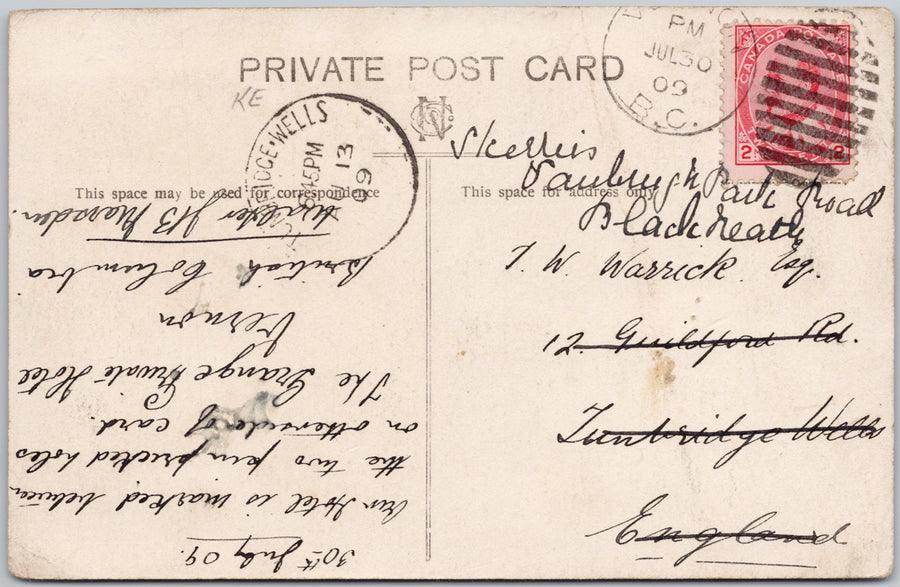 PRIVATE POST CARD
KE
TUNBRIDGE WELLS
8 45PM
AU 13
09
PM
JUL 30
09
B.C.
CANADA POSTAGE
2 2
This space may be used for correspondence
This space for address only
30th July 09.
Our Hotel is marked between
the two pin pricked holes
on otherside of card.
The Grange Private Hotel
Vernon
British Columbia
Walter H B Marsden.
Skerries
Vanbrugh Park Road
Blackheath
T. W. Warrick Esq.
12. Guildford Rd.
Tunbridge Wells
England